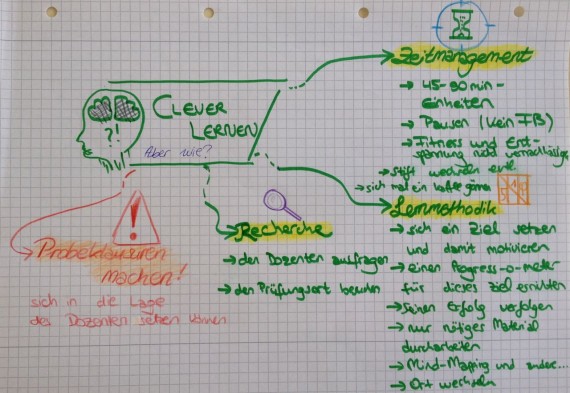 CLEVER
LERNEN
Aber wie?
?!
Zeitmanagement
→ 45-90 min-
Einheiten
→ Pausen (kein FB)
→ Fitness und Ent-
spannung nicht vernachlässigen
→ Stift wechseln evtl
→ sich mal ein Kaffee gönnen
Lernmethodik
→ sich ein Ziel setzen
und damit motivieren
→ einen Progress-o-meter
für dieses Ziel errichten
→ Seinen Erfolg verfolgen
→ nur nötiges Material
durcharbeiten
→ Mind-Mapping und andere...
→ Ort wechseln
Recherche
→ den Dozenten ausfragen
→ den Prüfungsort besuchen
!
Probeklausuren
machen!
sich in die Lage
des Dozenten setzen können